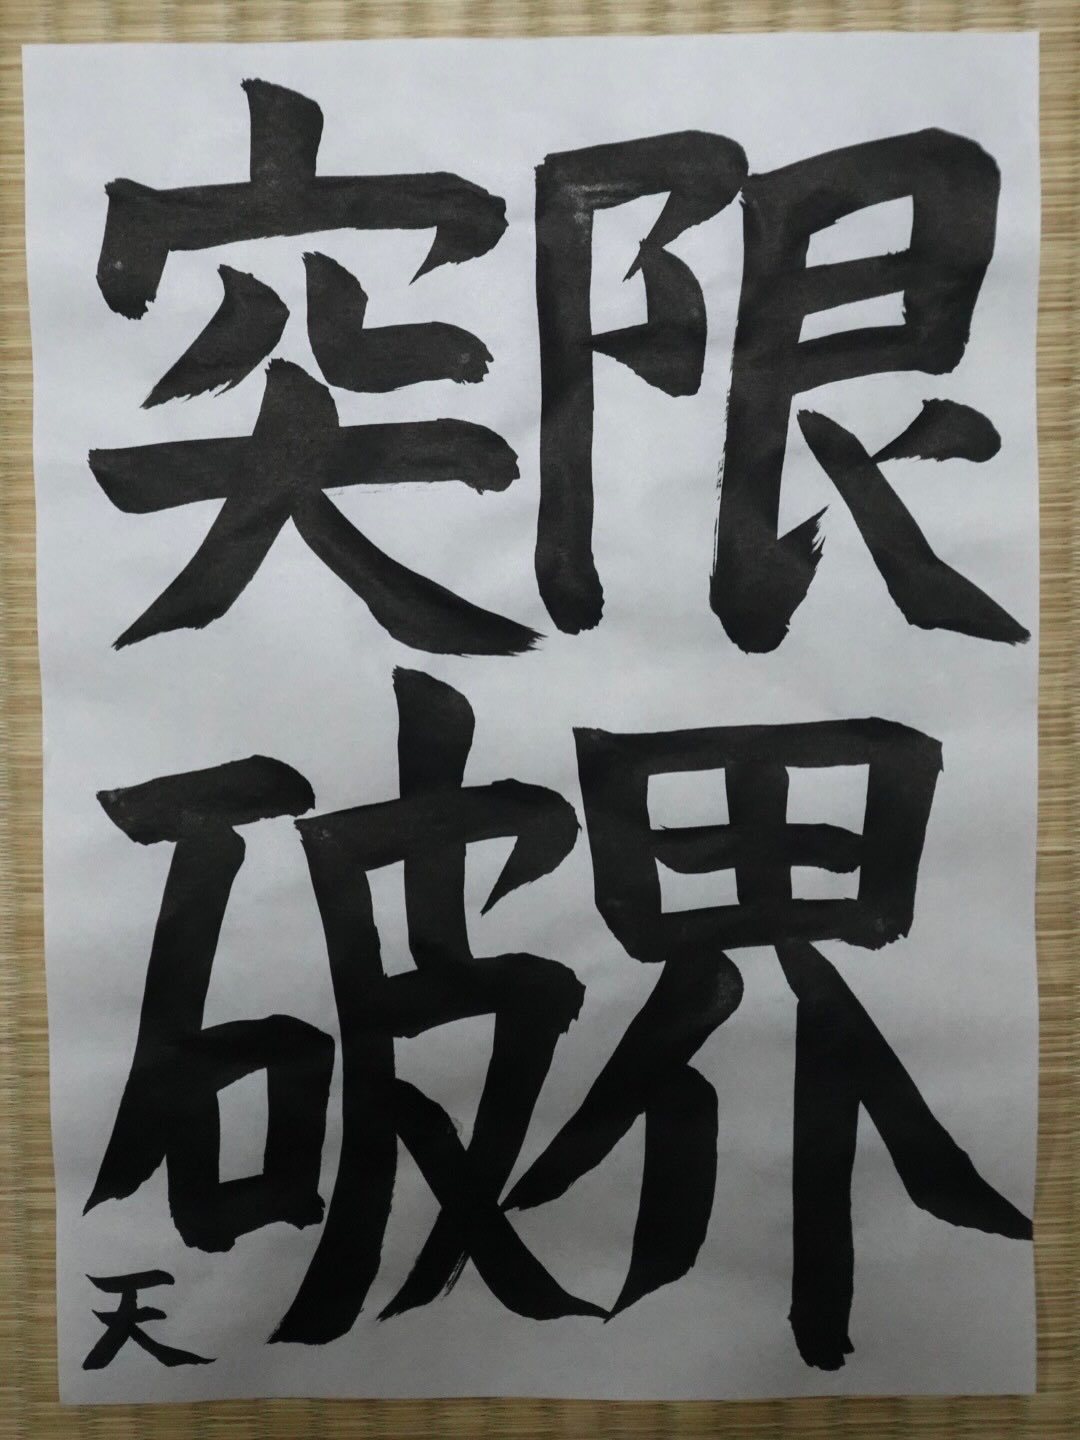 限界
突破
天